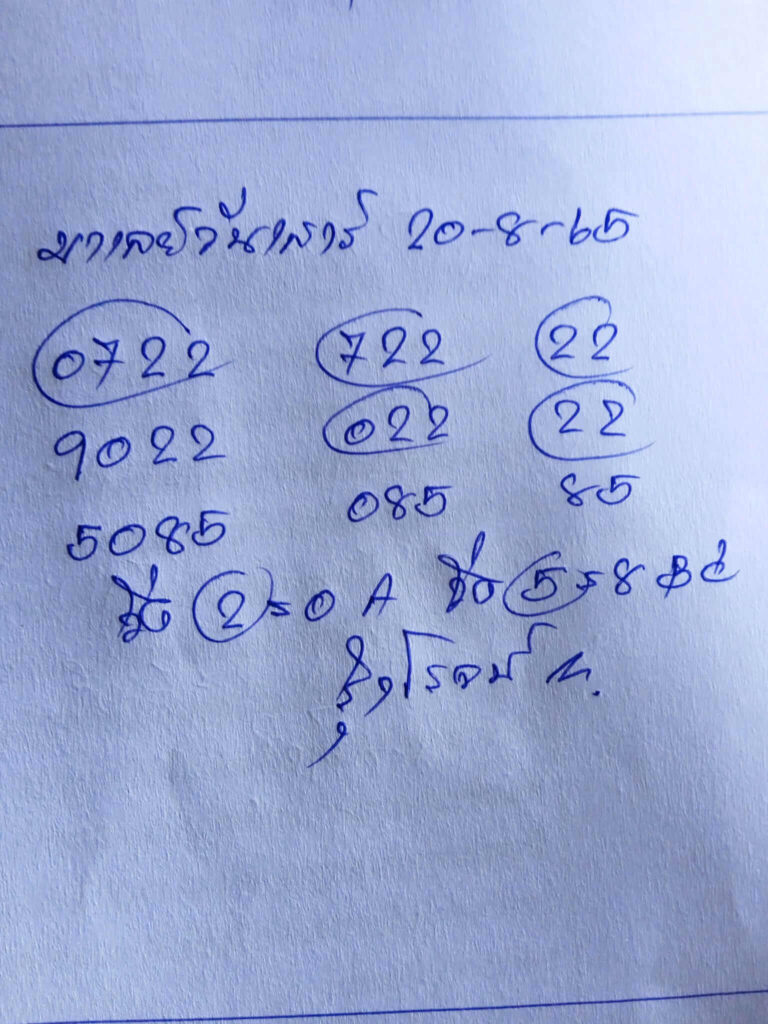 มาเลย์วันเสาร์ 20-8-65
0722 722 22
9022 022 22
5085 085 85
2=0 A 5=8
รุ่งโรจน์ น.